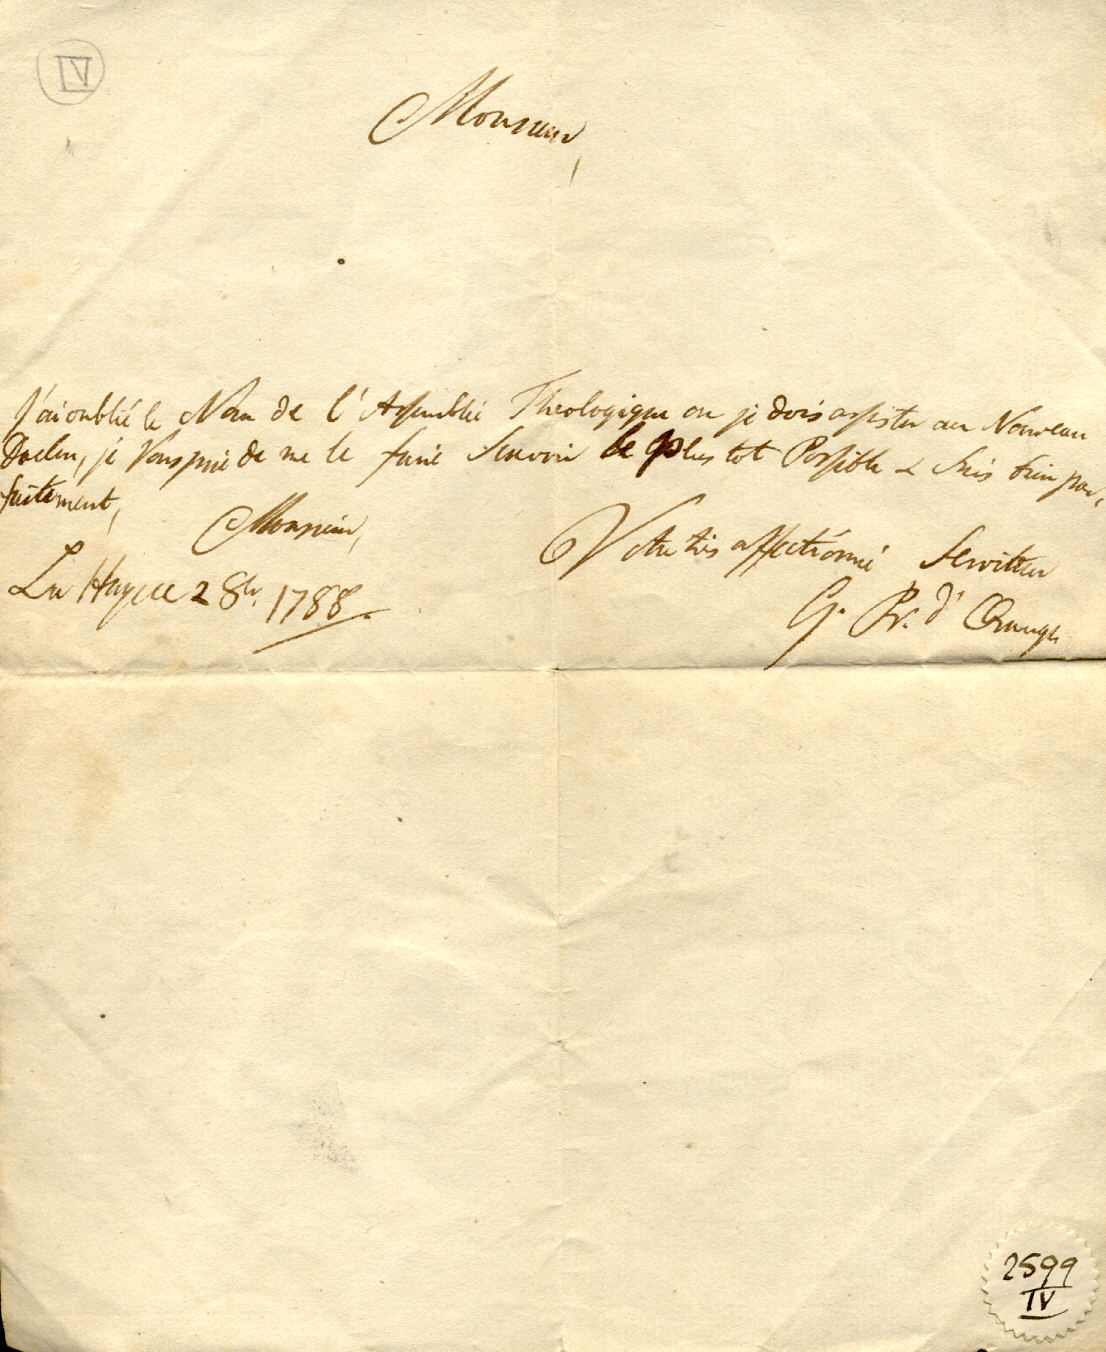 IV
Monsieur,
J'ai oublié le Nom de l'Assemblée Theologique ou je dois assister au Nouveau
Doelen, je Vous prie de me le faire Scavoir le plus tot Possible & Suis bien par-
faitement,
Monsieur,
Votre tres affectionné Serviteur
La Haye ce 2 8br. 1788.
G. Pr. d'Orange
2599
IV